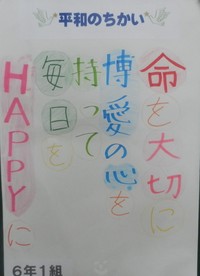 平和のちかい
命を大切に
博愛の心を
持って
毎日を
HAPPYに
6年1組